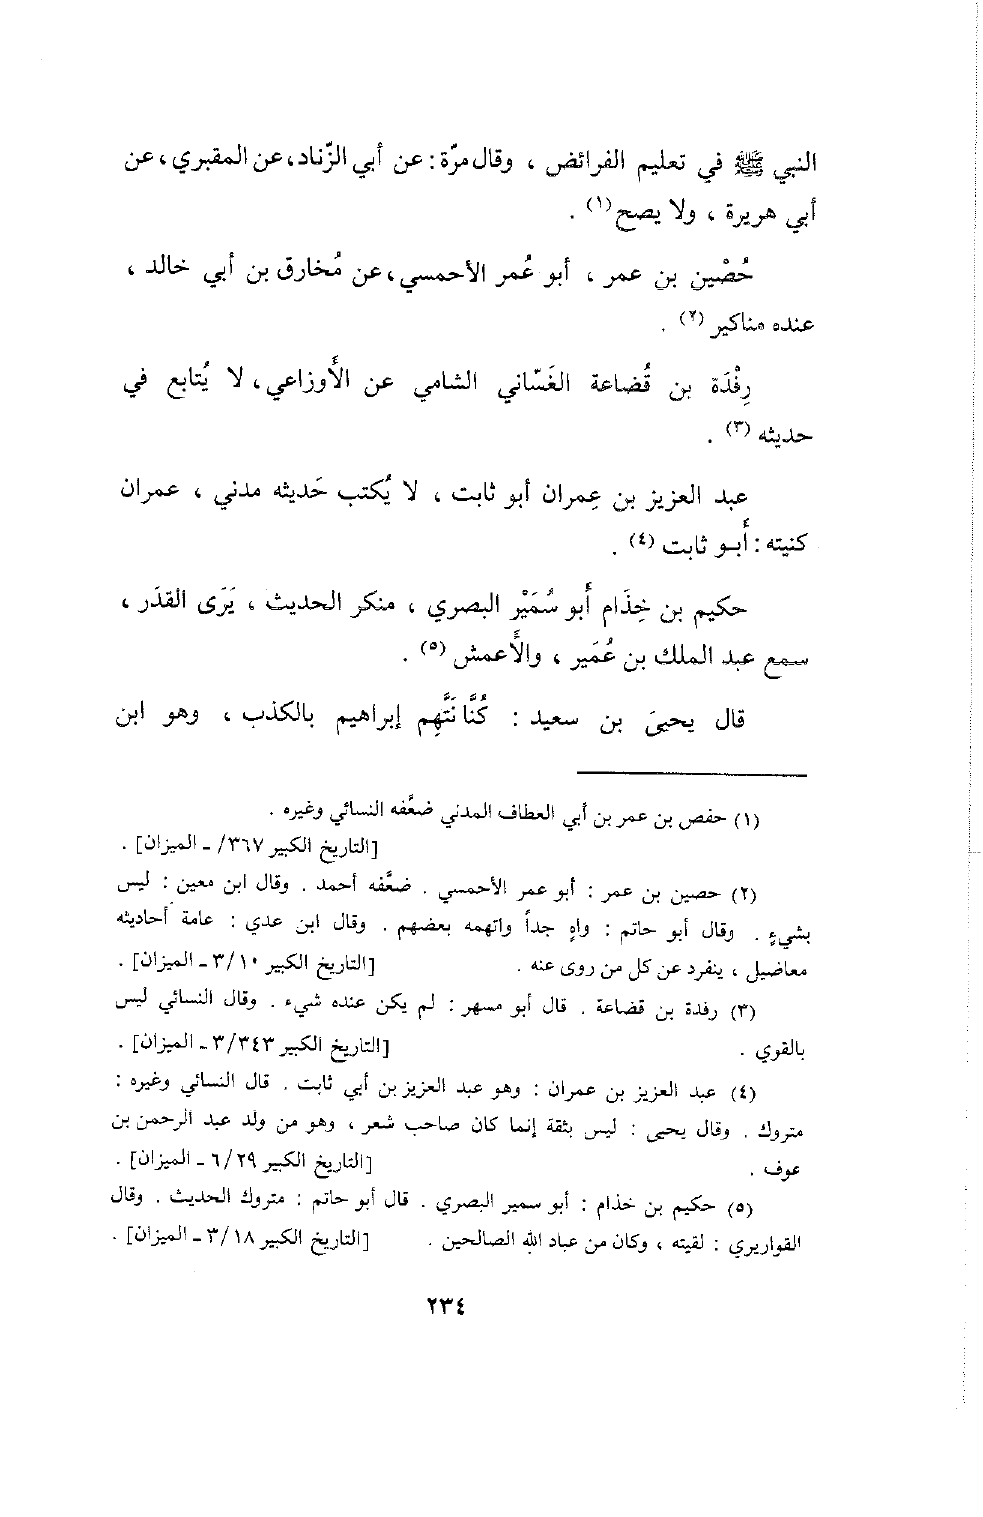 النبي ﷺ في تعليم الفرائض ، وقال مرّة : عن أبي الزّناد، عن المقبري ، عن
أبي هريرة ، ولا يصح (١) .
حُصْين بن عمر ، أبو عُمر الأحمسي ، عن مُخارق بن أبي خالد ،
عنده مناكير (٢) .
رِفْدَة بن قُضاعة الغَسّاني الشامي عن الأَوزاعي ، لا يُتابع في
حديثه (٣) .
عبد العزيز بن عِمران أبو ثابت ، لا يُكتب حَديثه مدني ، عمران
كنيته : أَبو ثابت (٤) .
حكيم بن خِذَام أَبو سُمَيْر البصري ، منكر الحديث ، يَرَى القدَر ،
سمع عبد الملك بن عُمَير ، والأَعمش (٥) .
قال يحيىَ بن سعيد : كُنَّا نَتَّهِم إبراهيم بالكذب ، وهو ابن
(١) حفص بن عمر بن أبي العطاف المدني ضعَّفه النسائي وغيره .
[التاريخ الكبير ٣٦٧/ ـ الميزان] .
(٢) حصين بن عمر : أبو عمر الأحمسي . ضعَّفه أحمد . وقال ابن معين : ليس
بشيءٍ . وقال أبو حاتم : واهٍ جداً واتهمه بعضهم . وقال ابن عدي : عامة أحاديثه
معاضيل ، ينفرد عن كل من روى عنه . [التاريخ الكبير ٣/١٠ ـ الميزان] .
(٣) رفدة بن قضاعة . قال أبو مسهر : لم يكن عنده شيء . وقال النسائي ليس
بالقوي . [التاريخ الكبير ٣/٣٤٣ ـ الميزان] .
(٤) عبد العزيز بن عمران : وهو عبد العزيز بن أبي ثابت . قال النسائي وغيره :
متروك . وقال يحيى : ليس بثقة إنما كان صاحب شعر ، وهو من ولد عبد الرحمن بن
عوف . [التاريخ الكبير ٦/٢٩ ـ الميزان] .
(٥) حكيم بن خذام : أبو سمير البصري . قال أبو حاتم : متروك الحديث . وقال
القواريري : لقيته ، وكان من عباد الله الصالحين . [التاريخ الكبير ٣/١٨ ـ الميزان] .
٢٣٤